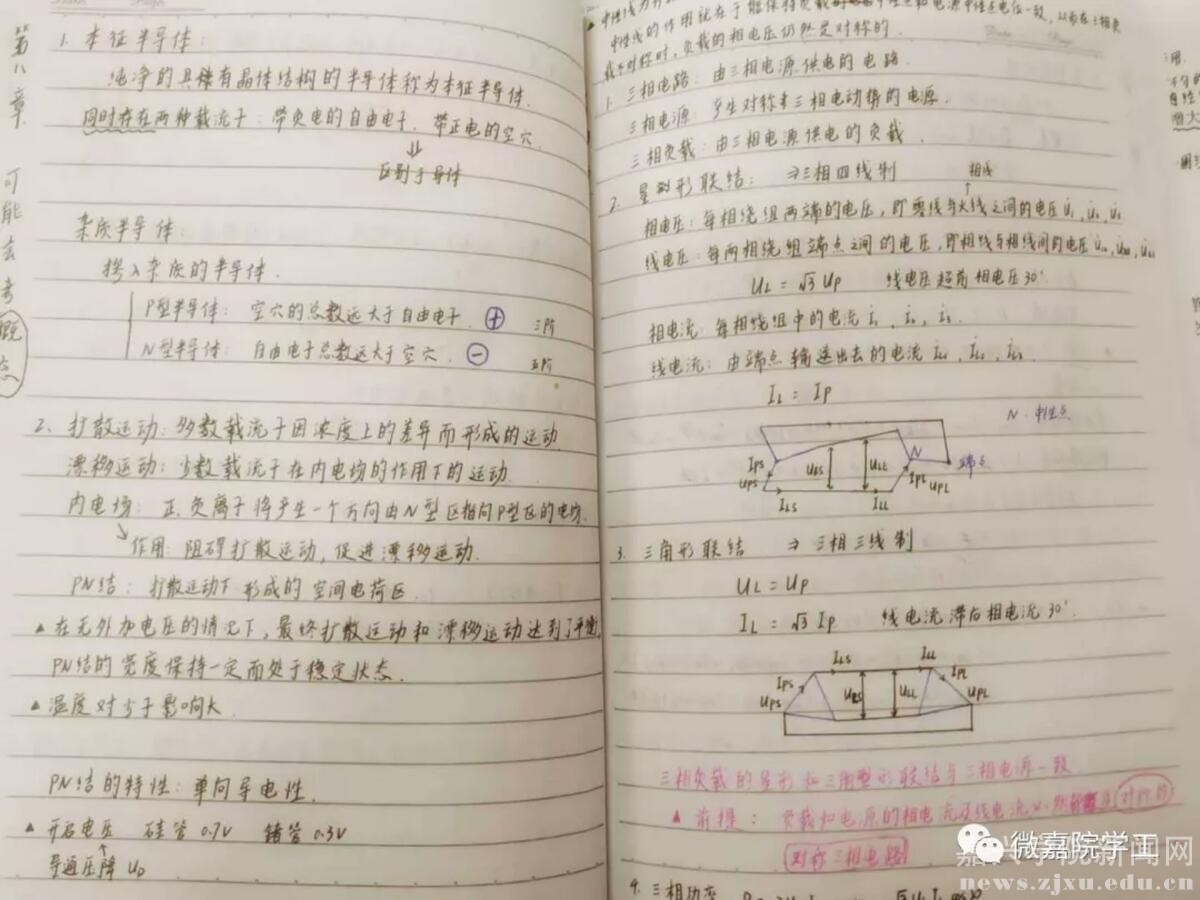 第八章 可能去考概念
1. 本征半导体：
纯净的具有晶体结构的半导体称为本征半导体.
同时存在两种载流子：带负电的自由电子. 带正电的空穴.
⇓
区别于导体
杂质半导体
掺入杂质的半导体.
P型半导体： 空穴的总数远大于自由电子. + 三阶
N型半导体： 自由电子总数远大于空穴. − 五阶
2. 扩散运动：多数载流子因浓度上的差异而形成的运动.
漂移运动：少数载流子在内电场的作用下的运动.
内电场： 正.负离子将产生一个方向由N型区指向P型区的电场.
作用：阻碍扩散运动，促进漂移运动.
PN结： 扩散运动下形成的空间电荷区.
▲在无外加电压的情况下，最终扩散运动和漂移运动达到了平衡,
PN结的宽度保持一定而处于稳定状态.
▲温度对少子影响大.
PN结的特性：单向导电性.
▲开启电压 硅管 0.7V 锗管 0.3V
导通压降 UD
中性线的作用就在于能保持负载中性点和电源中性点电位一致，从而在三相负
载不对称时，负载的相电压仍然是对称的.
1. 三相电路：由三相电源供电的电路.
三相电源：产生对称三相电动势的电源.
三相负载：由三相电源供电的负载.
2. 星形联结： ⇒三相四线制 相线
相电压：每相绕组两端的电压，即零线与火线之间的电压
线电压：每两相绕组端点之间的电压，即相线与相线间的电压
UL = √3 UP 线电压超前相电压30°
相电流：每相绕组中的电流
线电流：由端点输送出去的电流
IL = IP
N：中性点
N 端点
IPS UPS ULS ULL IPL UPL
ILS ILL
3. 三角形联结 ⇒ 三相三线制
UL = UP
IL = √3 IP 线电流滞后相电流30°.
ILS ILL
IPS UPS ULL IPL UPL
三相负载的星形和三角形联结与三相电源一致
▲前提： 负载和电源的相电流及线电流 对称的
对称三相电路
4. 三相功率
微嘉院学工
嘉兴学院新闻网
news.zjxu.edu.cn